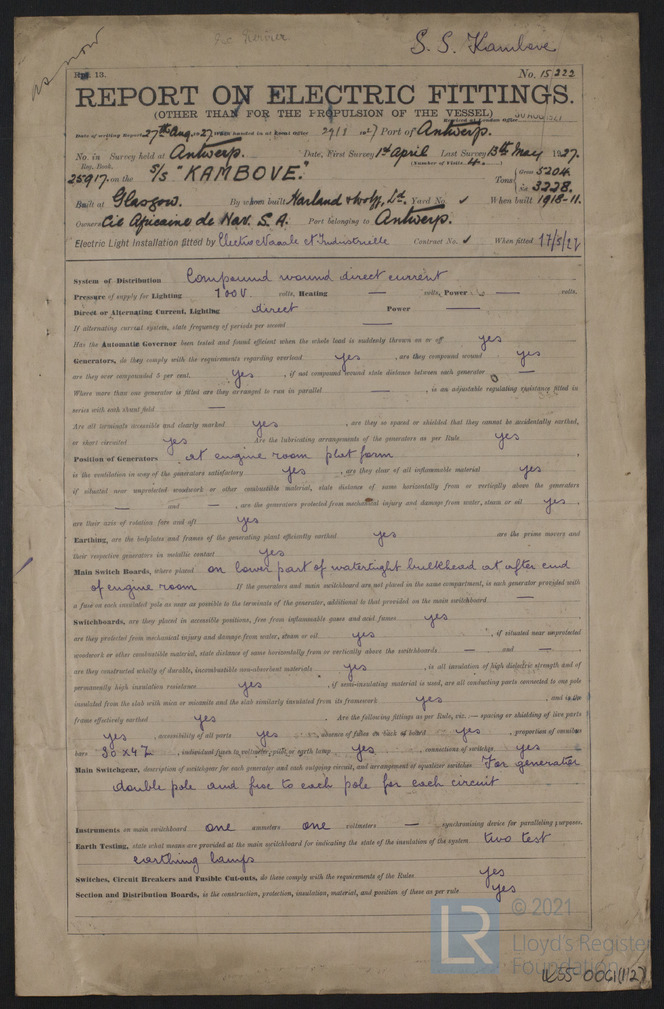 as now
S. S. Kambove
Rpt. 13.
No. 15,222
REPORT ON ELECTRIC FITTINGS.
(OTHER THAN FOR THE PROPULSION OF THE VESSEL)
Received at London Office
Date of writing Report 27th Aug. 1927. When handed in at Local Office 29/8 1927 Port of Antwerp.
No. in Survey held at Antwerp. Date, First Survey 1st April Last Survey 13th May 1927.
Reg. Book. (Number of Visits 4.
25917. on the S/S "KAMBOVE". Tons Gross 5204. Net 3228.
Built at Glasgow. By whom built Harland & Wolff, Ld. Yard No. ✓ When built 1918-11.
Owners Cie Africaine de Nav. S. A. Port belonging to Antwerp.
Electric Light Installation fitted by Electro Navale et Industrielle Contract No. ✓ When fitted 17/5/27
System of Distribution Compound wound direct current
Pressure of supply for Lighting 100V volts, Heating — volts, Power — volts.
Direct or Alternating Current, Lighting direct Power —
If alternating current system, state frequency of periods per second —
Has the Automatic Governor been tested and found efficient when the whole load is suddenly thrown on or off yes
Generators, do they comply with the requirements regarding overload yes , are they compound wound yes
are they over compounded 5 per cent. yes , if not compound wound state distance between each generator —
Where more than one generator is fitted are they arranged to run in parallel — , is an adjustable regulating resistance fitted in
series with each shunt field —
Are all terminals accessible and clearly marked yes , are they so spaced or shielded that they cannot be accidentally earthed,
or short circuited yes Are the lubricating arrangements of the generators as per Rule yes
Position of Generators at engine room platform
is the ventilation in way of the generators satisfactory yes , are they clear of all inflammable material yes
if situated near unprotected woodwork or other combustible material, state distance of same horizontally from or vertically above the generators
— and — , are the generators protected from mechanical injury and damage from water, steam or oil yes ,
are their axis of rotation fore and aft yes
Earthing, are the bedplates and frames of the generating plant efficiently earthed yes are the prime movers and
their respective generators in metallic contact yes
Main Switch Boards, where placed on lower part of watertight bulkhead at after end
of engine room If the generators and main switchboard are not placed in the same compartment, is each generator provided with
a fuse on each insulated pole as near as possible to the terminals of the generator, additional to that provided on the main switchboard —
Switchboards, are they placed in accessible positions, free from inflammable gases and acid fumes yes ,
are they protected from mechanical injury and damage from water, steam or oil yes , if situated near unprotected
woodwork or other combustible material, state distance of same horizontally from or vertically above the switchboards — and — ,
are they constructed wholly of durable, incombustible non-absorbent materials yes , is all insulation of high dielectric strength and of
permanently high insulation resistance yes , if semi-insulating material is used, are all conducting parts connected to one pole
insulated from the slab with mica or micanite and the slab similarly insulated from its framework yes , and is the
frame effectively earthed yes . Are the following fittings as per Rule, viz.:— spacing or shielding of live parts
yes , accessibility of all parts yes , absence of fuses on back of board yes , proportion of omnibus
bars , individual fuses to voltmeter, pilot or earth lamp yes , connections of switches yes
Main Switchgear, description of switchgear for each generator and each outgoing circuit, and arrangement of equaliser switches For generator
double pole and fuse to each pole for each circuit
Instruments on main switchboard one ammeters one voltmeters — synchronising device for paralleling purposes.
Earth Testing, state what means are provided at the main switchboard for indicating the state of the insulation of the system two test
earthing lamps
Switches, Circuit Breakers and Fusible Cut-outs, do these comply with the requirements of the Rules yes
Section and Distribution Boards, is the construction, protection, insulation, material, and position of these as per rule yes
LR
© 2021
Lloyd's Register
Foundation
W55-0061(1/2)